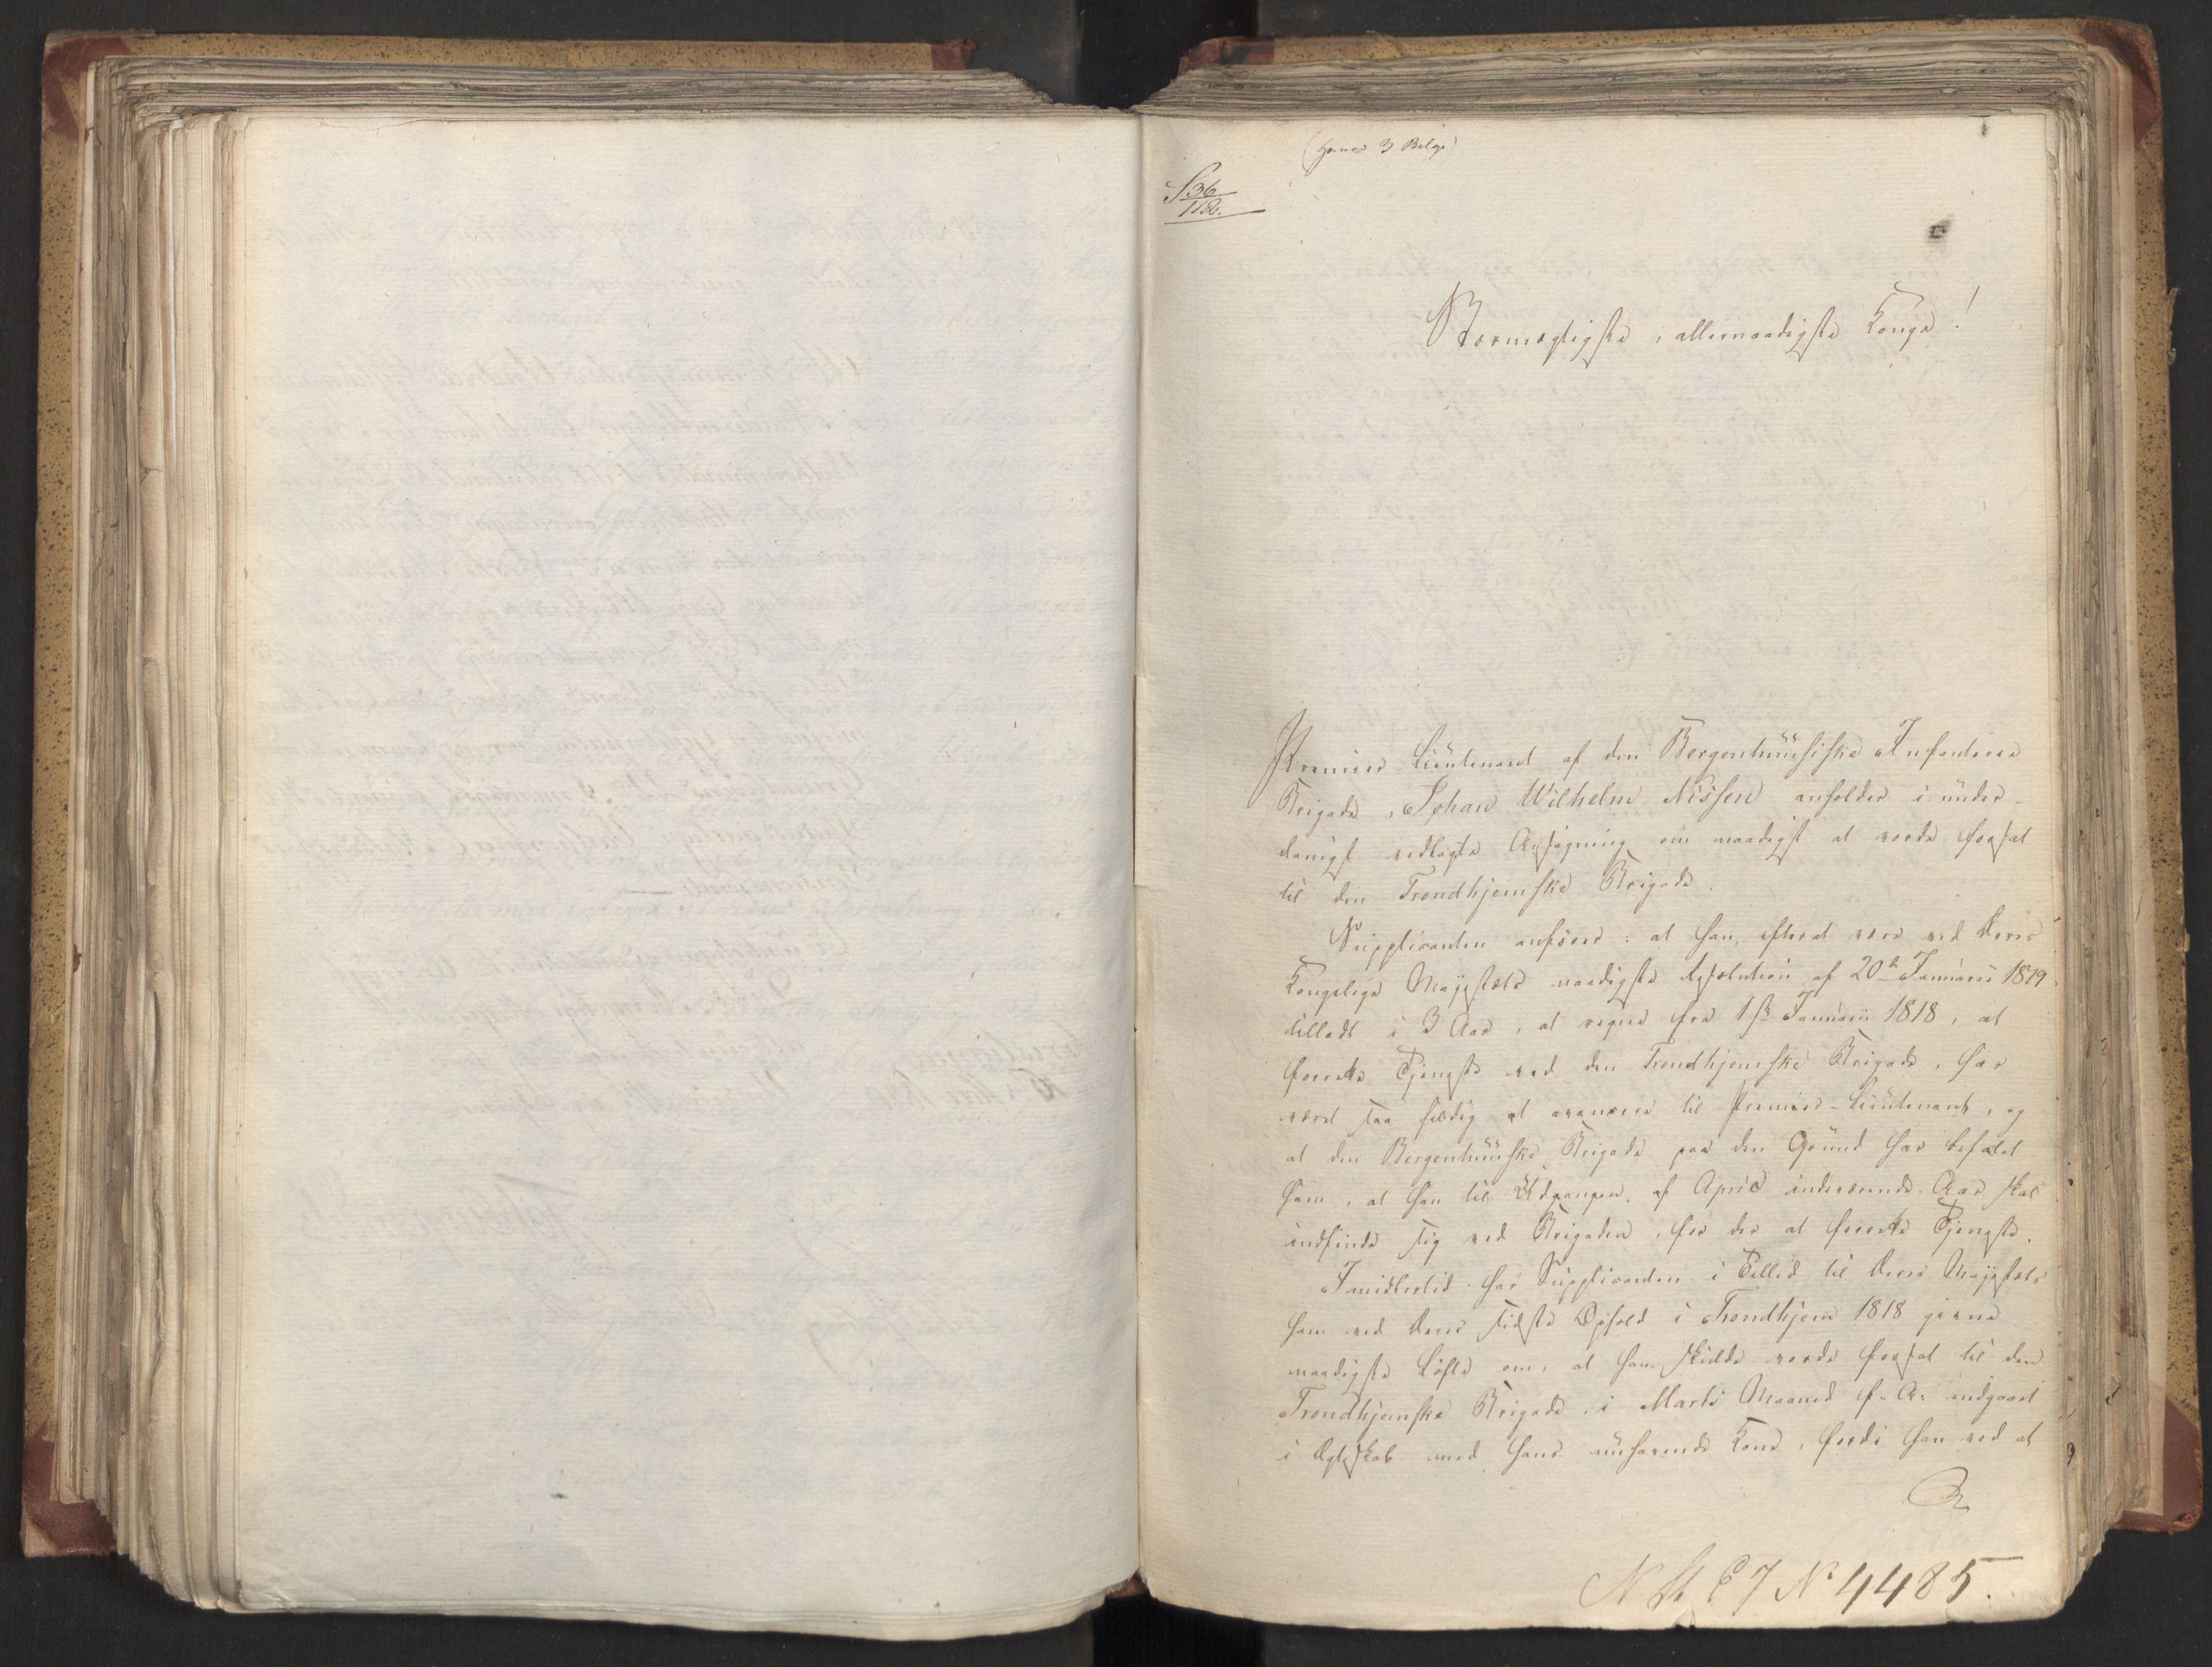 (Hermed 3 Bilage)
S 36
118.
Stormægtigste, allernaadigste Konge!
Premier Lieutenant af den Bergenhuusiske Infanterie
Brigade, Johan Wilhelm Nissen anholder i under-
danigst vedlagte Ansøgning om naadigst at vorde forsat
til den Trondhjemske Brigade.
Supplicanten anfører: at han, efterat være ved Deres
Kongelige Majestæts naadigste Resolution af 20de Januarii 1819
tilladt i 3 Aar, at regne fra 1ste Januarii 1818, at
forrette Tjeneste ved den Trondhjemske Brigade, har
været saa heldig at avancere til Premier-Lieutenant, og
at den Bergenhuuske Brigade paa den Grund har befalet
ham, at han til Udgangen af April indeværende Aar skal
indfinde sig ved Brigaden, for der at forrette Tjeneste.
Imidlertid har Supplicanten i Tillid til Deres Majestæts
ham ved Deres sidste Ophold i Trondhjem 1818 givne
naadigste Løfte om, at han skulde vorde forsat til den
Trondhjemske Brigade, i Marts Maaned f: A: indgaaet
i Ægteskab med hans nuhavende Kone, fordi han ved at
N 4485.